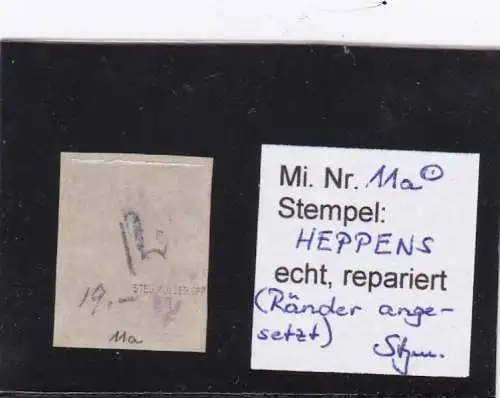 STEU MÜLLER OPP
19.-
11a
Mi. Nr. 11a
Stempel:
HEPPENS
echt, repariert
(Ränder ange-
setzt)